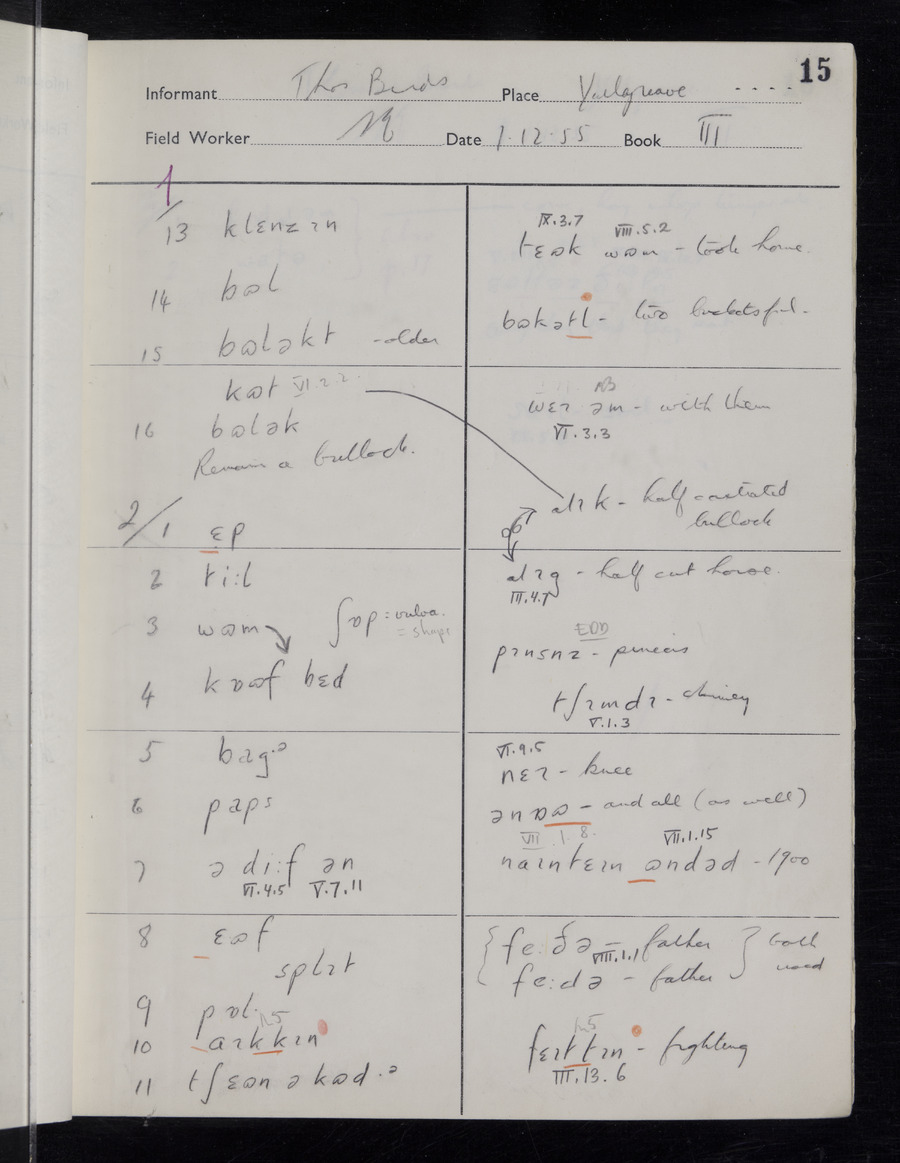 15
Informant Thos Birds Place Youlgreave
Field Worker Date 1·12·55 Book III
1/13 klɛnzɪn
14 bʊl
15 bʊləkt - older
kʊt VI.2.2.
16 bʊlək
Remain a bullock.
2/1 ɛp
2 ti:l
3 wʊm ʃɒp = vulva.
= shape
4 kɒʊf bɛd
5 bag·ə
6 paps
7 ə di:f ən
VI.4.5 V.7.11
8 ɛʊf
splɪt
9 pɒl·
10 aɪkkɪn
11 tʃɛʊn ə kʊd·ə
IX.3.7 VIII.5.2
tɛʊk wʊm - took home.
bʊkətl - two bucketsful.
NB
wɛɪ əm - with them
VI.3.3
alɪk - half castrated
bullock
alɪg - half cut horse.
III.4.7
EDD
pɪnsnz - pincers
tʃɪmdɪ - chimney
V.1.3
VI.9.5
nɛɪ - knee
ən ɒʊ - and all (as well)
VII.1.8. VII.1.15
naɪntɛɪn ʊndəd - 1900
fe:ðə - father
VIII.1.1
fe:də - father
both
used
fɛɪttɪn - fighting
III.13.6